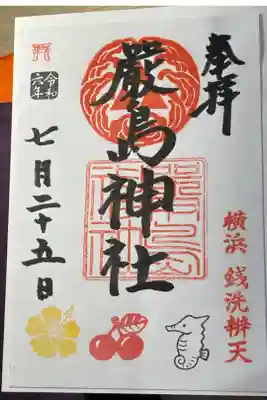 奉拝
横浜 銭洗辨天
嚴島神社
令和
六年
七月二十五日